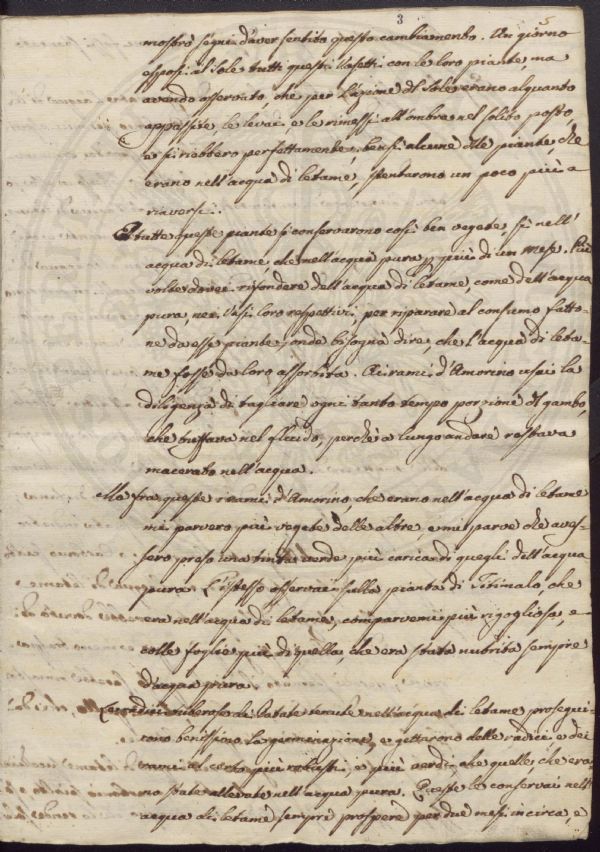 3
5
mostrò segni d'aver sentito questo cambiamento. Un giorno
esposi al Sole tutti questi Vasetti con le loro piante, ma
avendo osservato, che per l'azione dl Sole erano alquanto
appassite, le levai, e le rimessi all'ombra nel solito posto,
e si riebbero perfettamente; bensì alcune dlle piante, che
erano nell'acqua di letame, stentarono un poco più a
rinversi.
tutte queste piante si conservarono così ben vegete, sì nell'
acqua di letame, che nell'acqua pura p più di un mese. Più
volte dovei rifondere dell'acqua di letame, come dell'acqua
pura, nei Vasi loro respettivi, per riparare al consumo fatto-
ne da esse piante; onde bisogna dire, che l'acqua di leta-
me fosse da loro assorbita. Ai rami d'Amorino usai la
diligenza di tagliare ogni tanto tempo porzione dl gambo,
che tuffava nel fluido, perchè a lungo andare restava
macerato nell'acqua.
Ma fra queste i rami d'Amorino, che erano nell'acqua di letame
mi parvero più vegete delle altre e mi parve che aves-
sero preso una tinta verde più carica di quegli dell'acqua
pura. L'istesso osservai sulla pianta di Titimalo, che
era nell'acqua di letame, comparvemi più rigogliosa, e
colle foglie più di quella, che era stata nutrita sempre
d'acqua pura.
Le radici tuberose di Patate tenute nell'acqua di letame prosegui-
rono benissimo la germinazione, e gettarono delle radici e dei
rami al certo più robusti, e più verdi, che quelle che era-
no state allevate nell'acqua pura. Queste le conservai nell'
acqua di letame sempre prospere per due mesi in circa, e